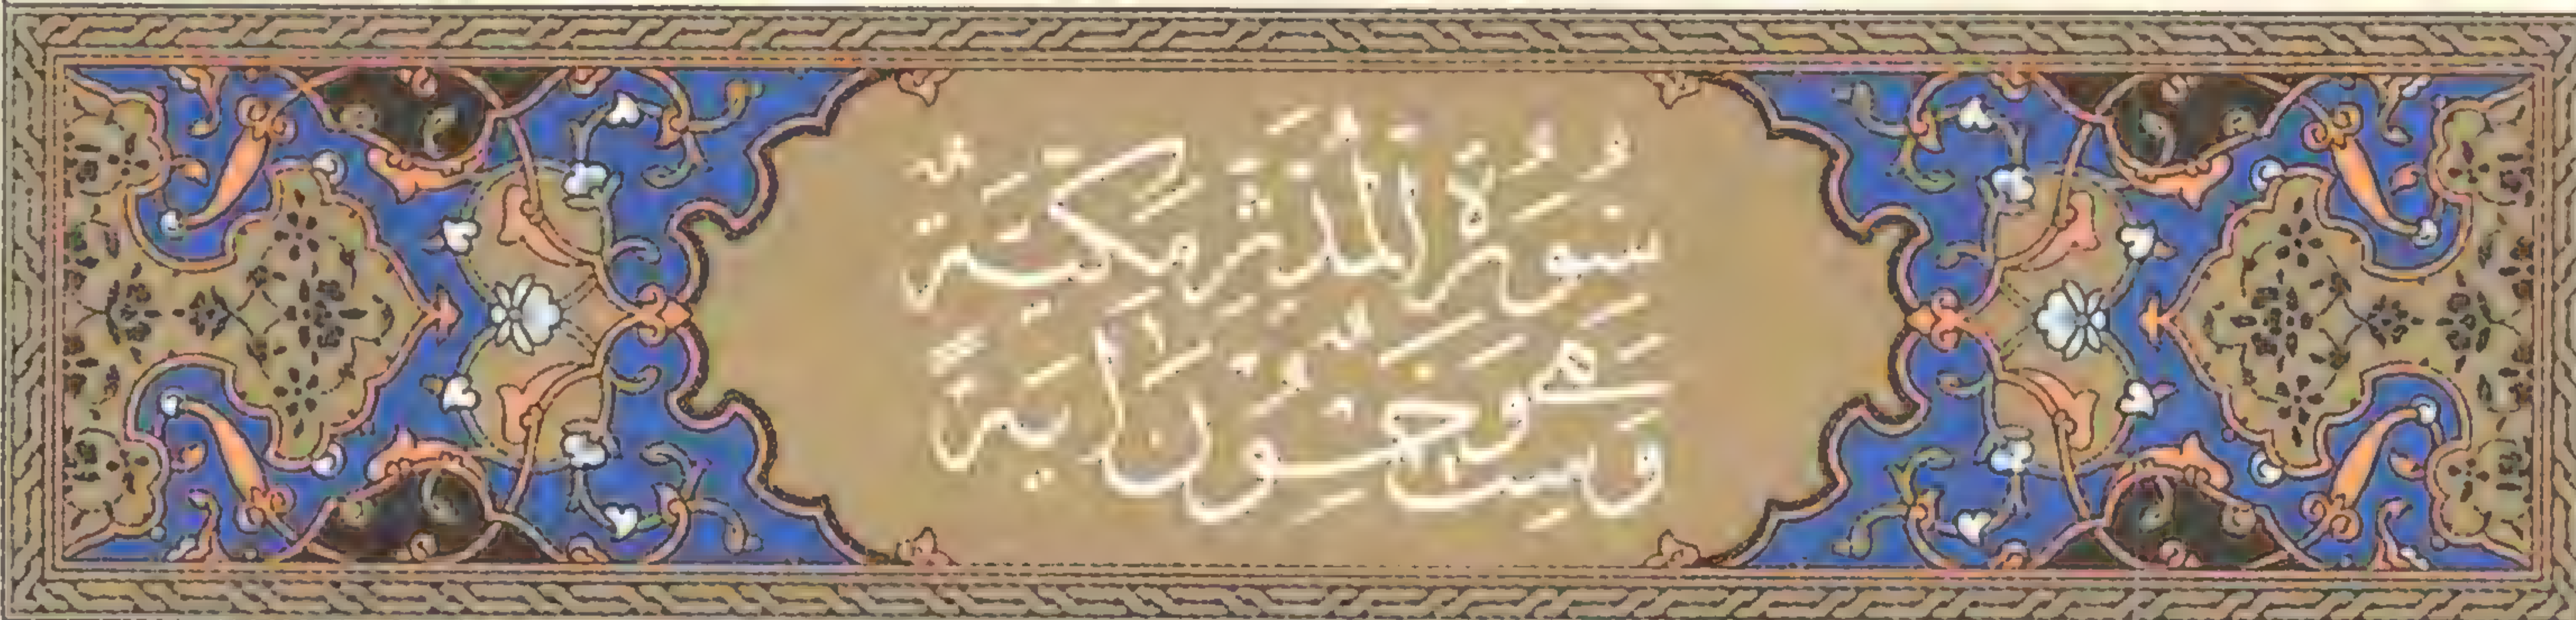 سُورَةُ الْمُدَّثِّرِ مَكِّيَّةٌ
وَهِىَ سِتٌّ وَخَمْسُونَ اٰيَةً